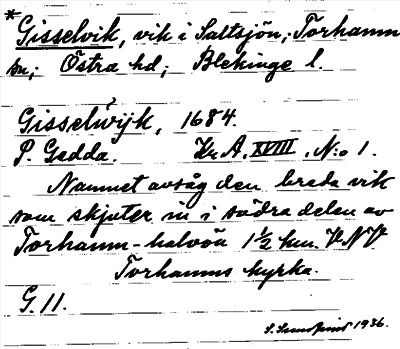 *Gisselvik, vik i Saltsjön, Torhamn
sn; Östra hd; Blekinge l.
Gisselwijk, 1684.
P. Gedda. Kr. A. XVIII. N:o 1.
Namnet avsåg den breda vik
som skjuter in i södra delen av
Torhamn-halvön 1½ km. VNV
Torhamns kyrka.
G. 11.
1936.